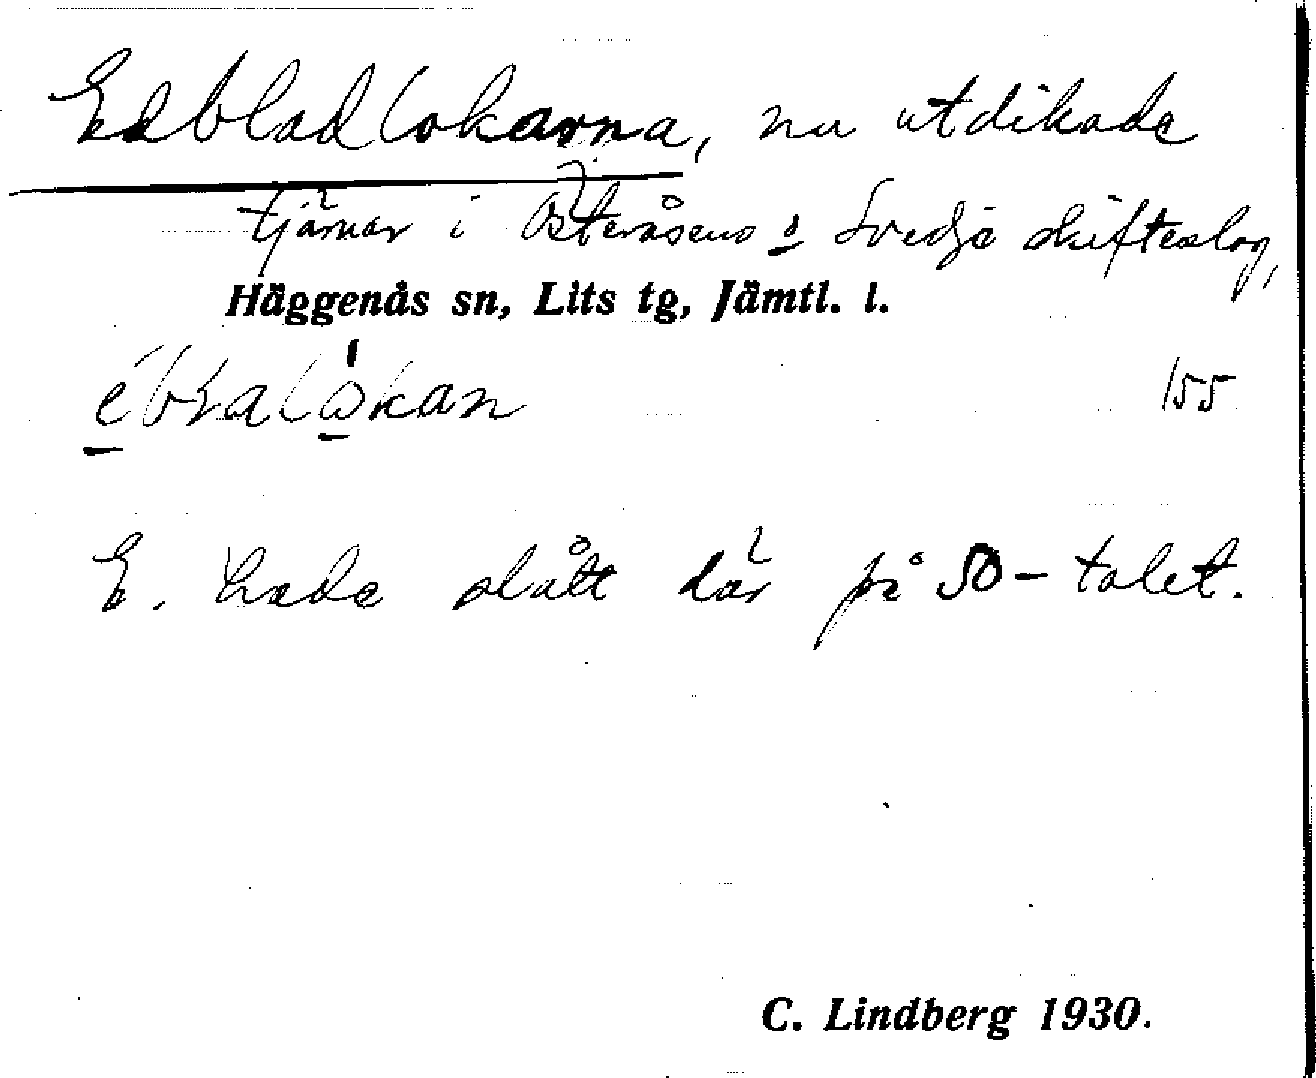 Edbladlokarna, nu utdikade
tjärnar i Österåsens o Svedje skifteslag,
Häggenås sn, Lits tg, Jämtl. l.
155
E. hade slått där på 50-talet.
C. Lindberg 1930.